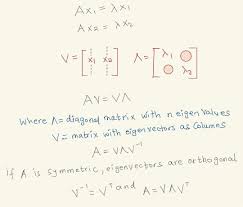 Ax₁ = λx₁
Ax₂ = λx₂
V = [x₁ x₂] Λ = [λ₁ 0 0 λ₂]
AV = VΛ
Where Λ = diagonal matrix with n eigen values
V = matrix with eigenvectors as columns
A = VΛV⁻¹
If A is symmetric, eigenvectors are orthogonal
V⁻¹ = Vᵀ and A = VΛVᵀ